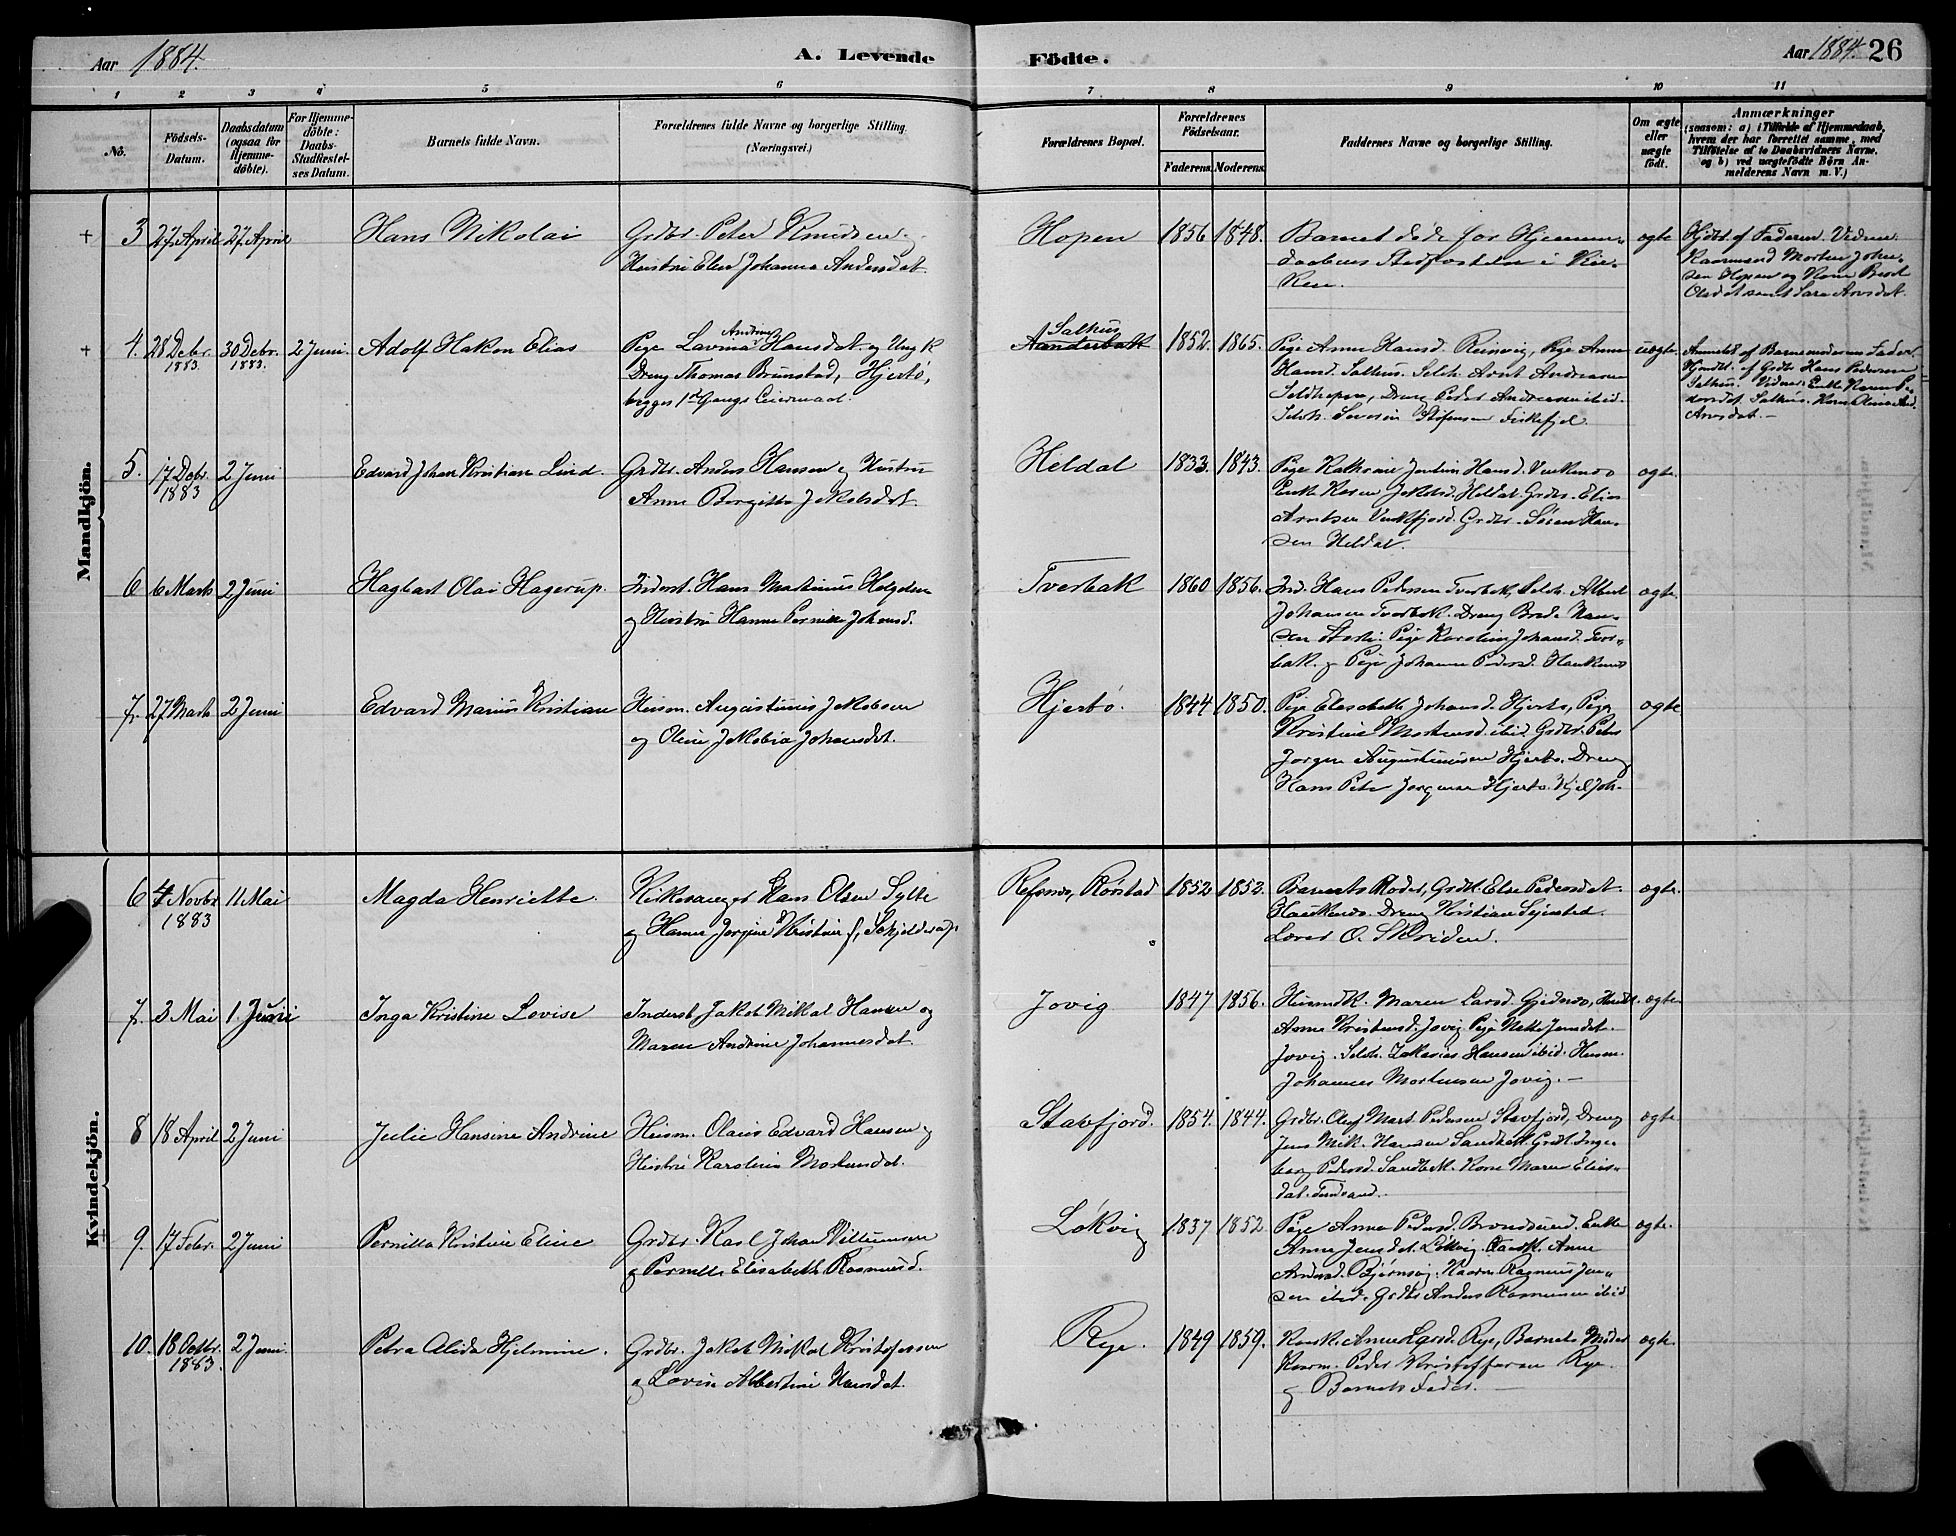 Aar 1884.
A. Levende
Födte.
Aar 1884. 26
1 2 3 4 5 6 7 8 9 10 11
No.
Födsels-
Datum.
Daabsdatum
(ogsaa for
Hjemme-
døbte).
For Hjemme-
døbte:
Daabs-
Stadfæstel-
ses Datum.
Barnets fulde Navn.
Forældrenes fulde Navne og borgerlige Stilling.
(Næringsvei.)
Forældrenes Bopæl.
Forældrenes
Födselsaar.
Faderens. Moderens.
Faddernes Navne og borgerlige Stilling.
Om ægte
eller
uægte
født.
Anmærkninger
(saasom: a) i Tilfælde af Hjemmedaab,
hvem der har forrettet samme, med
Tilføielse af to Daabsvidners Navne,
og b) ved uægtefödte Börn An-
melderens Navn m. V.)
Mandkjön.
+ 3 27 April 27 April
Hans Nikolai
Grdbr. Peter Knudsen og
Hustru Elen Johanna Andersdat.
Hopen
1856 1848.
Barnet døde før Hjemme-
daabens Stadfæstelse i Kir-
ken.
ægte
Hjdbt. af Faderen. Vidner:
Rasmus Morten Johan-
sen Hopen og Kone Berit
Olsdat samt Sara Arnsdat.
+ 4. 28 Debr. 1883. 30 Debr. 1883. 2 Juni.
Adolf Hakon Elias
Pige Lavina Andrine Hansdat. og Ungk
Dreng Thomas Brunstad, Hjertø,
begges 1ste Gangs Leiermaal.
Salhus
1852. 1865.
Pige Anne Hansd. Reinvig, Pige Anne
Hansd. Salhus. Selvh. Arnt Andreasen
Seldhopen, Dreng Peder Andreasen ibid.
Selvh. Severin Stefensen Fiskefjel.
uægte.
Anmeldt af Barnemoderens Fader.
Hjmdbt. af Grdbr Hans Pedersen
Salhus. Vidner: Enke Karen Pe-
dersdat. Salhus. Kone Olina And.
Arnsdat.—
5. 17 Debr. 1883 2 Juni
Edvard Johan Kristian Lind.
Grdbr. Anders Hansen og Hustru
Anne Bergitte Jakobsdat.
Heldal
1833. 1843.
Enke Karen Jakobsd. Heldal. Grdbr. Elias
Arntsen Vinkfjord. Grdbr. Søren Han-
sen Heldal.
ægte.
6 6 Marts 2 Juni
Hagbart Olai Hagerup.
Inderst. Hans Martinus Helgesen
og Hustru Hanna Pernille Johansd.
Tverbak
1860 1856.
Ind. Hans Pedersen Tverbak, Selvh. Albert
Johansen Tverbak. Dreng Peder Han-
sen. Pige Karoline Johansd. Tver-
bak. og Pige Johanna Pedersd. Haukenes
ægte.
7. 27 Marts 2 Juni
Edvard Marius Kristian
Husm. Augustinus Jakobsen
og Oline Jakobia Johansdat.
Hjertø.
1844 1850.
Pige Elesabeth Johansd. Hjertø, Pige
Kristine Mortensd. ibid. Grdbr. Peder
Jørgen Augustinusen Hjertø. Dreng
Hans Peter Jørgensen Hjertø. Kjel Joh.
ægte
Kvindekjön.
6 4 Novbr 1883 11 Mai
Magda Henriette.
Kirkesanger Hans Olsen Sylte
og Hanna Jørgine Kristine f. Schjelderup.
Refsnæs, Rørstad
1852 1852.
Barnets Moder, Grdk. Else Pedersdat.
Haukenes. Dreng Kristian Sejersted.
Lærer O. Skreden.
ægte.
7. 3 Mai 1. Juni
Inga Kristine Lovise
Inderst Jakob Mikal Hansen og
Maren Andrine Johannesdat.
Jovig
1847 1856.
Husmdk. Maren Larsd. Gjednæs,
Anne Kristensd. Jovig. Pige Mette Jensdat.
Jovig. Selvh. Zakarias Hansen ibid. Husm.
Johannes Mortensen Jovig.—
ægte
8 18 April 2 Juni
Julie Hansine Andrine
Husm. Olaus Edvard Hansen og
Hustru Karolina Mortensdat.
Stavfjord.
1854. 1844.
Grdbr. Olef Mart. Pedersen Stavfjord, Dreng
Jens Mik. Hansen Sandbakk. Grdk. Inge-
borg Pedersd. Sandbak. Kone Maren Elias-
dat.
ægte
9. 17 Febr. 2 Juni
Pernilla Kristine Eline
Grdbr. Karl Johan Villumsen
og Pernille Elisabeth Rasmusd.
Løkvig
1837 1852
Pige Anna Pedersd. Brundsund. Enke
Anne Jensdat. Løkvig. Anne
Andersd. Bjørnsvig. Kaarm. Rasmus Jen-
sen ibid. Grdbr Anders Rasmusen ibid
ægte.
10. 18 Octbr. 1883. 2 Juni.
Petra Alida Hjelmine.
Grdbr. Jakob Mikal Kristofersen
og Lovise Albertine Hansdat.
Rye.
1849 1859.
Kaark. Anne Larsd. Rye, Barnets Moder
Kaarm. Peder Kristoffersen Rye.
og Barnets Fader.—
ægte.